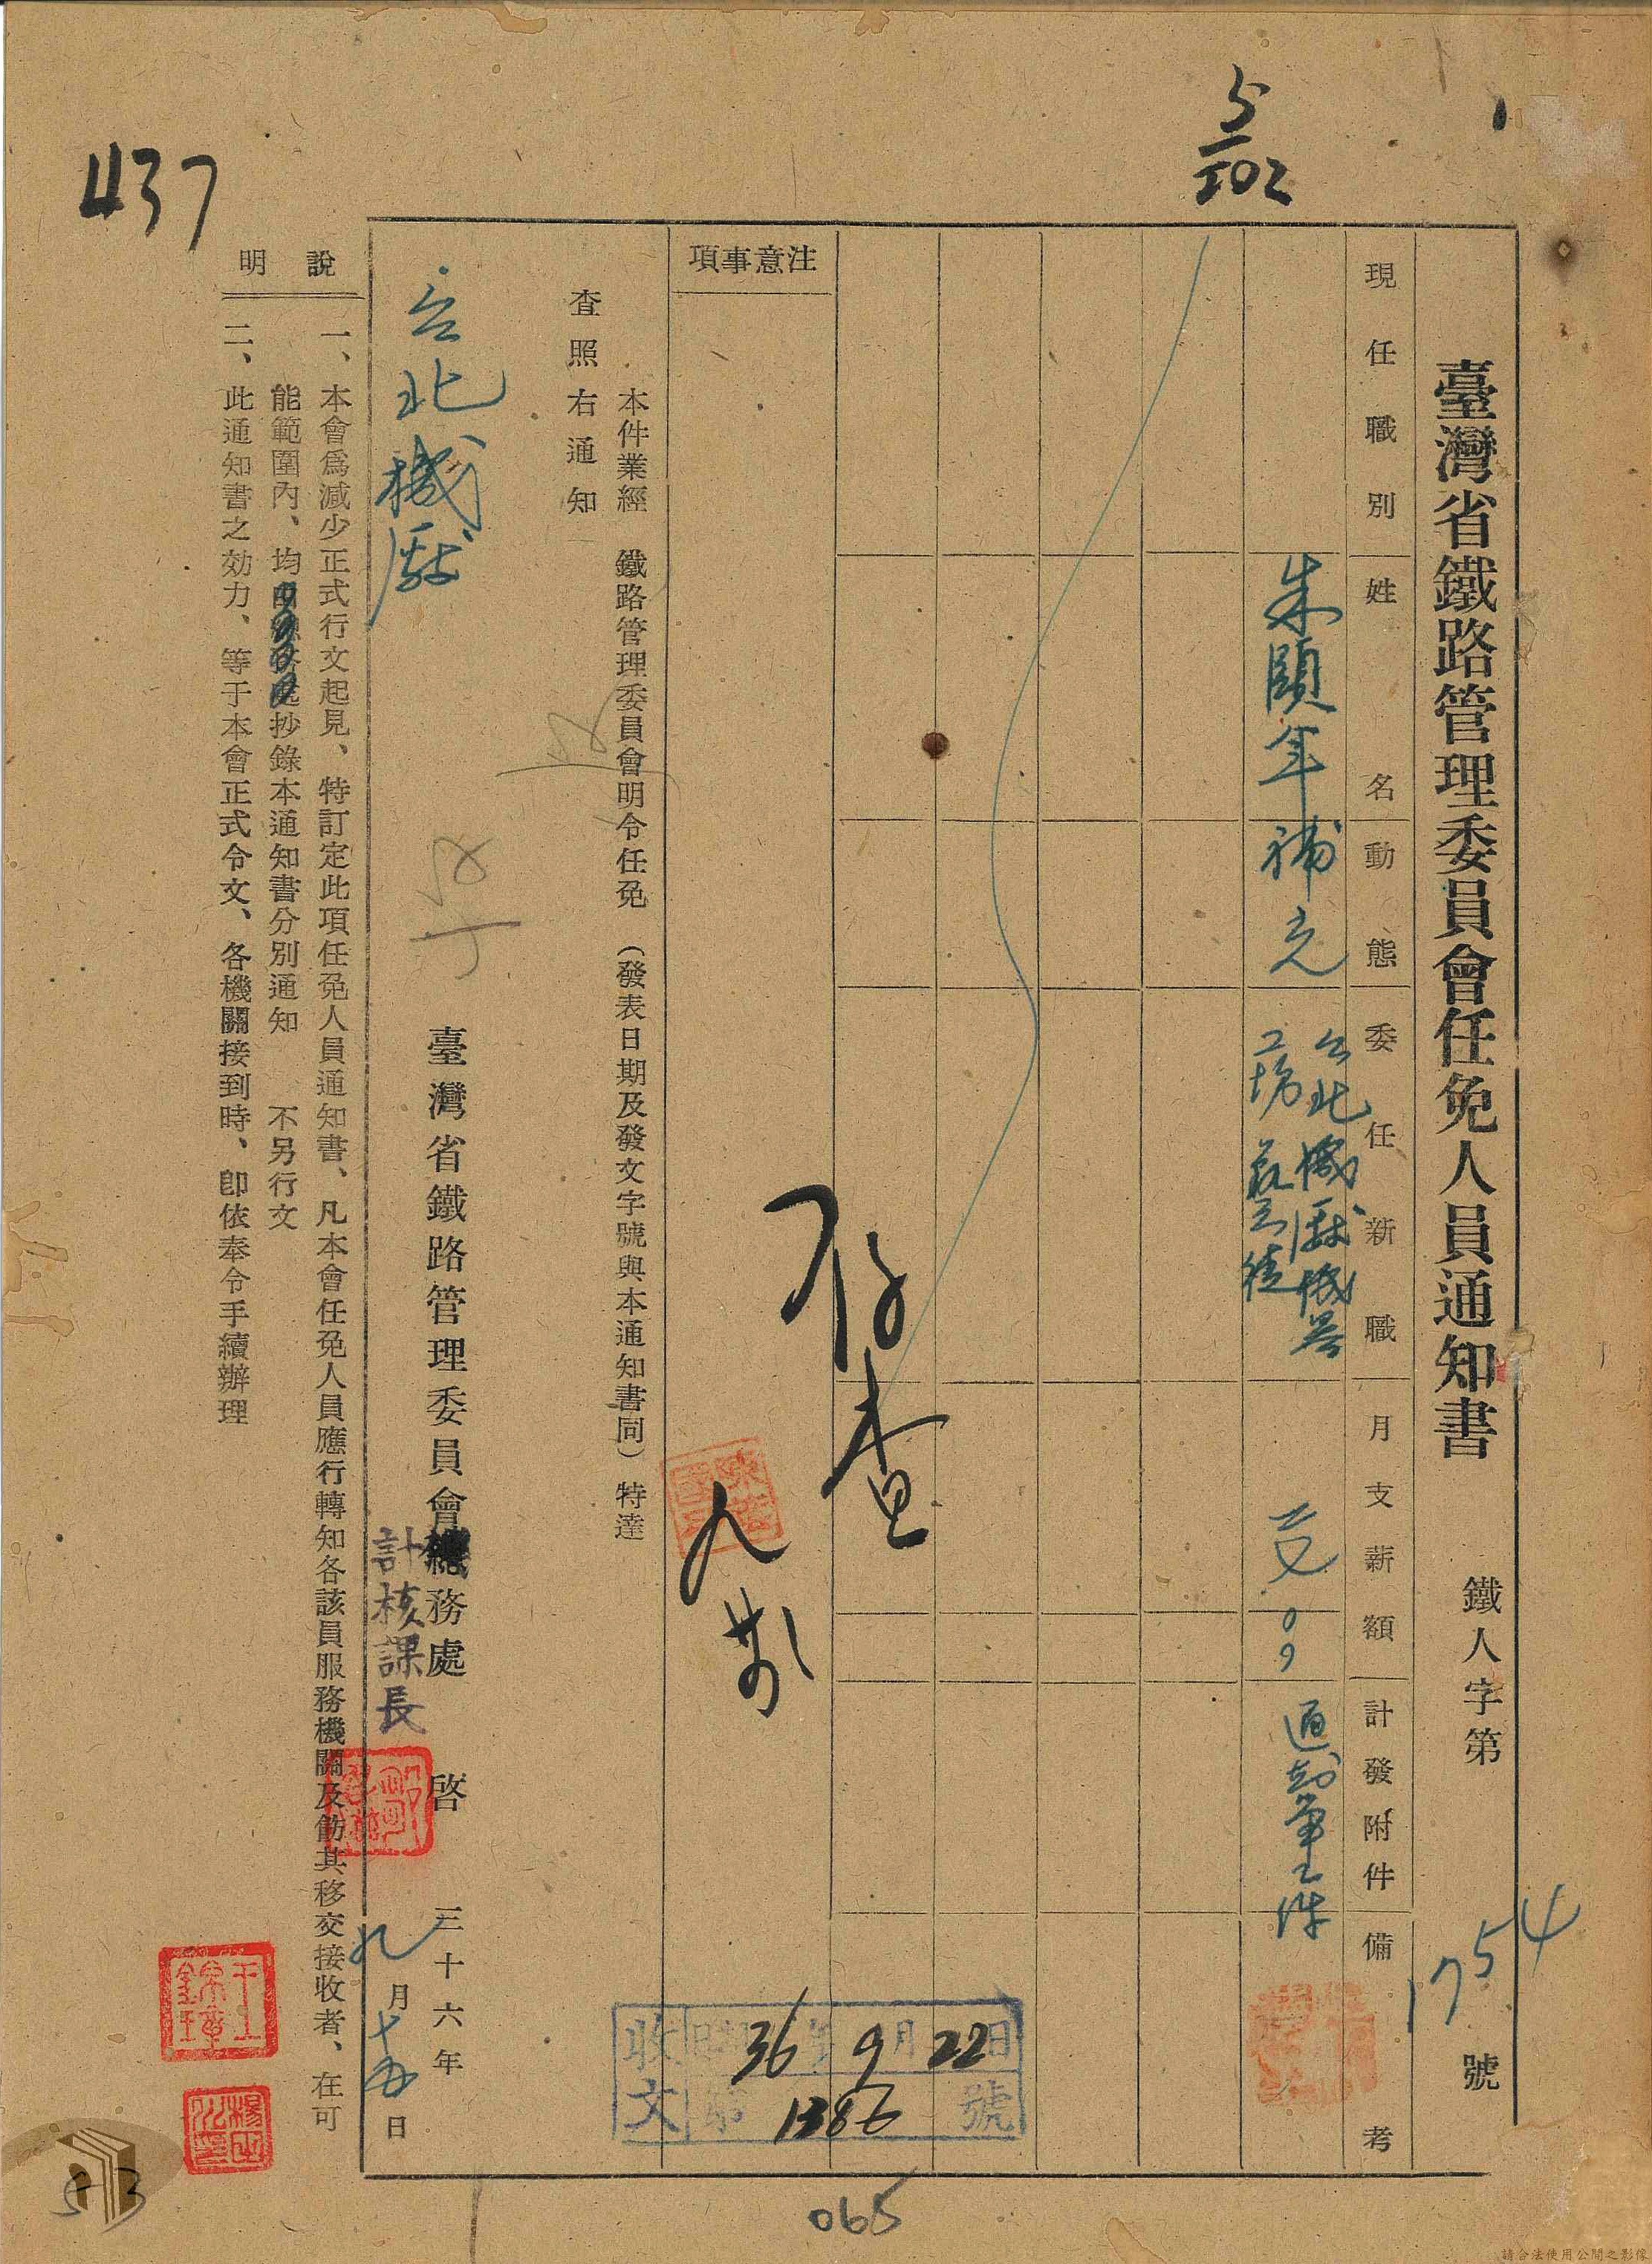 5/502
437
臺灣省鐵路管理委員會任免人員通知書
鐵人字第1754號
現任職別
姓名
動態
委任新職
月支薪額
計發附件
備考
朱頤年
補充
台北機廠機器
工場藝徒
通知單乙件
注意事項
存查
本件業經 鐵路管理委員會明令任免 (發表日期及發文字號與本通知書同) 特達
查照右通知
台北機廠
臺灣省鐵路管理委員會總務處 啓
計核課長
三十六年
九月十五日
收文
36年9月22日
第1386號
說明
一、本會爲減少正式行文起見、特訂定此項任免人員通知書、凡本會任免人員應行轉知各該員服務機關及飭其移交接收者、在可
能範圍內、均由總務處抄錄本通知書分別通知 不另行文
二、此通知書之効力、等于本會正式令文、各機關接到時、卽依奉令手續辦理
065
請合法使用公開之影像